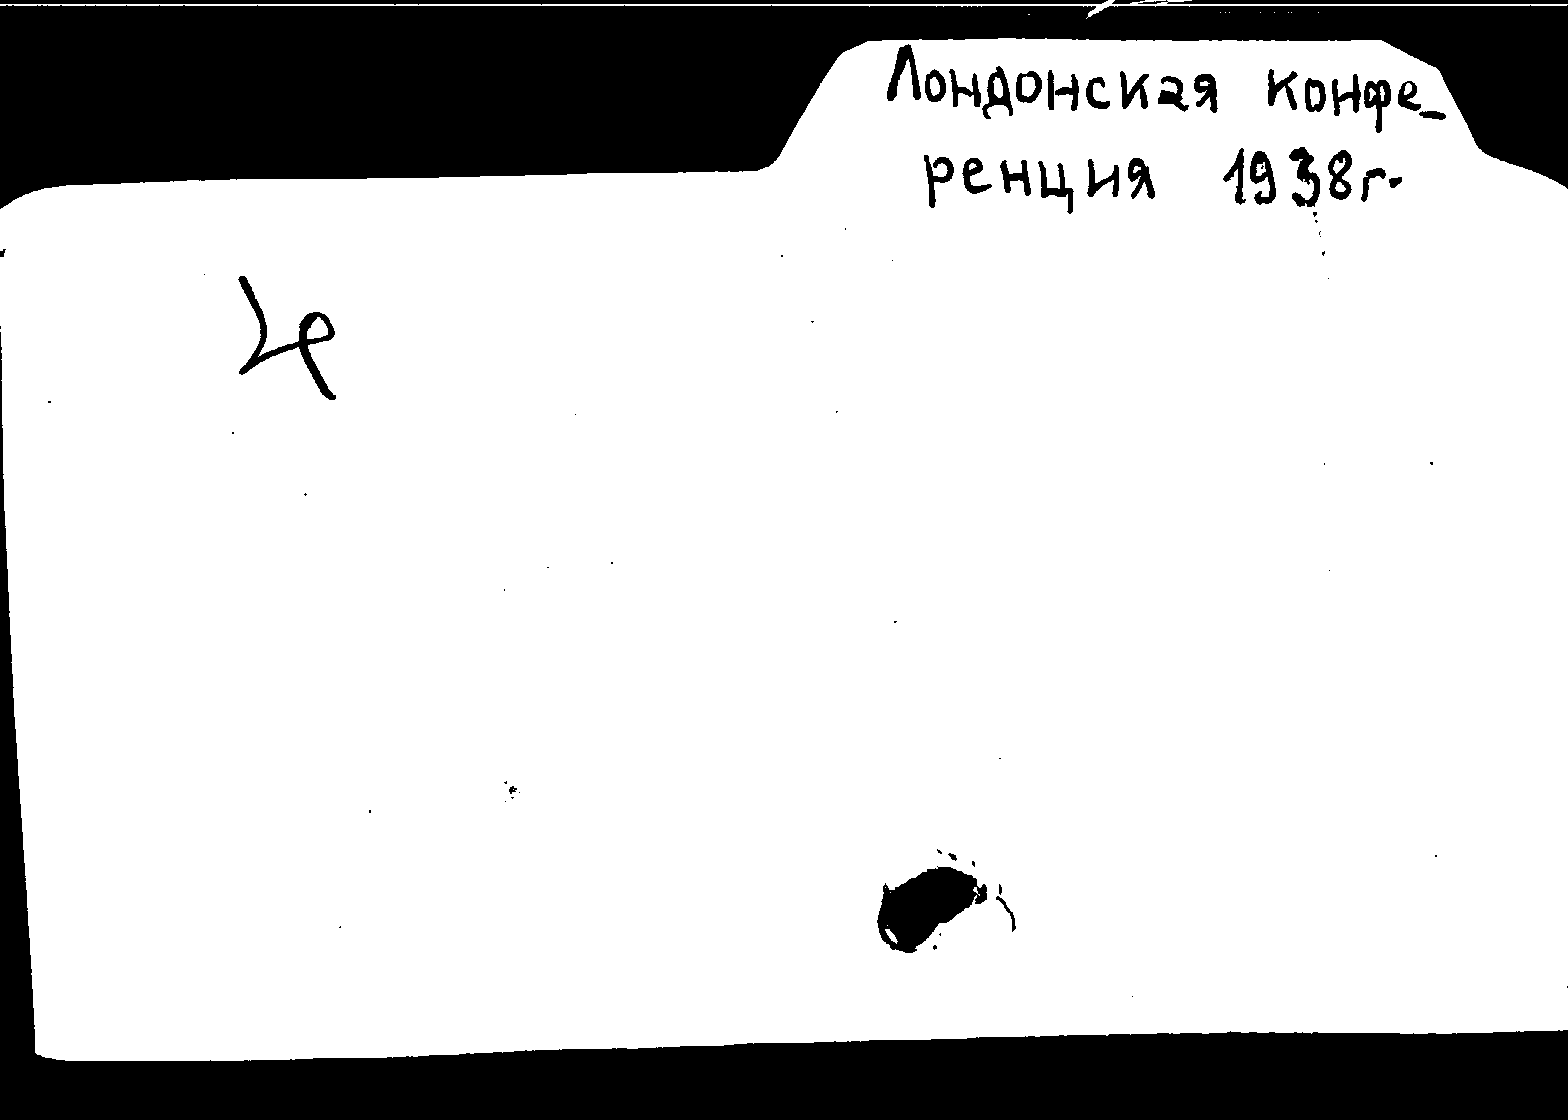 Лондонская конфе-
ренция 1938г.